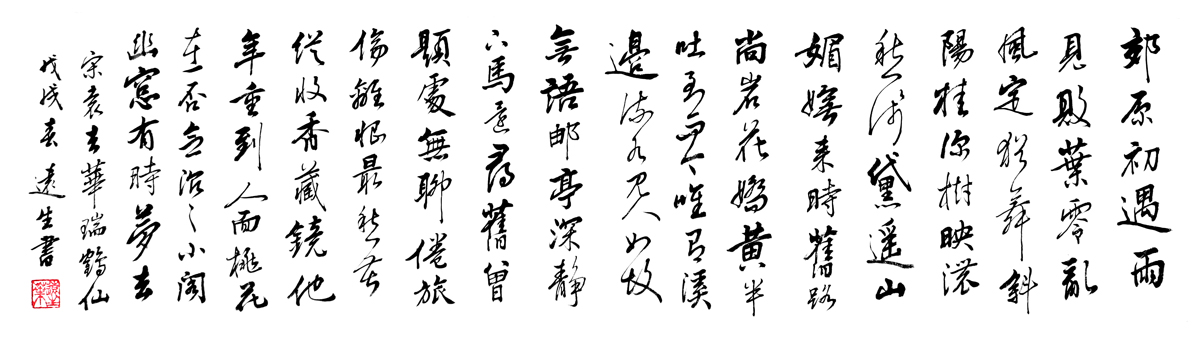 郊原初遇雨
見敗葉零亂
風定猶舞斜
陽挂深樹映濃
愁淺黛遥山
媚嫵来時舊路
尚岩花嬌黄半
吐到而今唯有溪
邊流水見人如故
無語邮亭深靜
下馬還尋舊曾
題處無聊倦旅
傷離恨最愁苦
縱收香藏鏡他
年重到人面桃花
在否念沉々小閣
幽窗有時夢去
宋袁去華瑞鶴仙
戊戌春遠生書